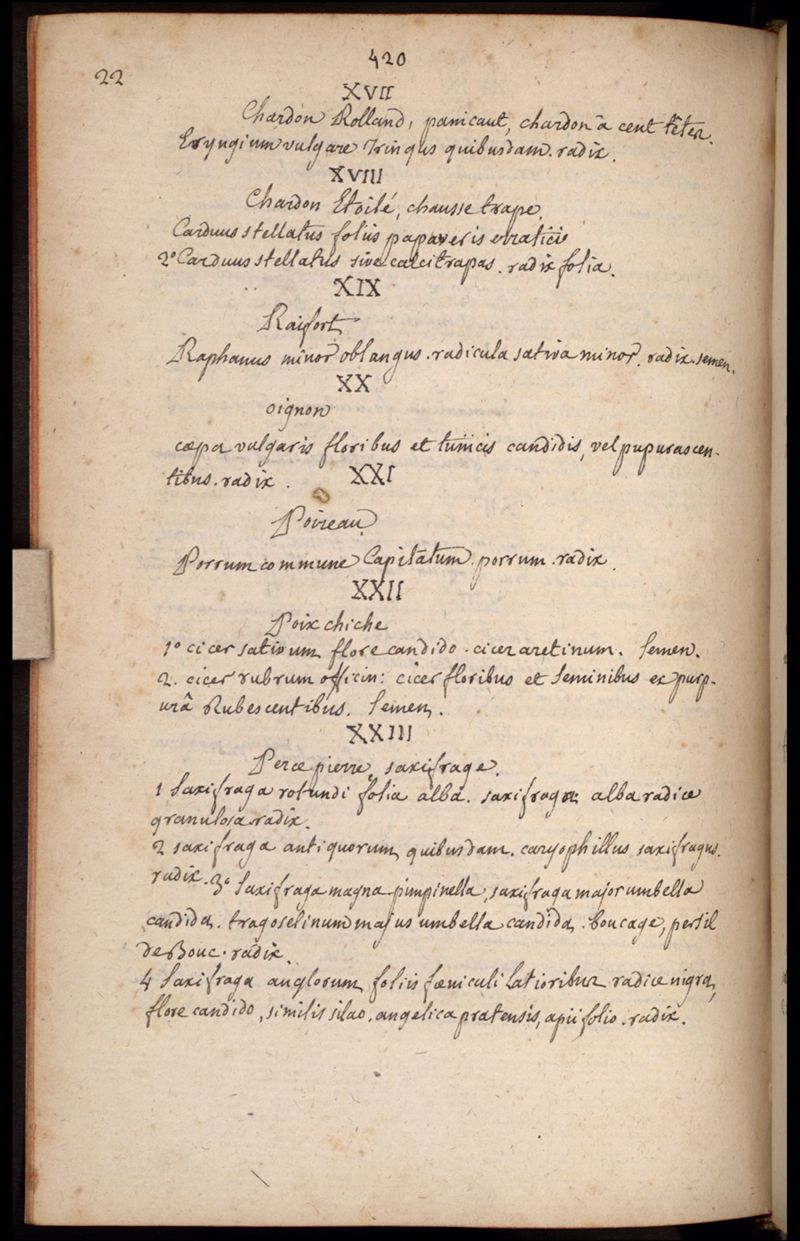 420
22
XVII
Chardon Rolland, panicaut, chardon à cent têtes.
Eryngium vulgare Iringus quibusdam. radix.
XVIII
Chardon Etoilé, chausse trape.
Carduus stellatus foliis papaveris erratici
2° Carduus stellatus sive calcitrapas. radix folia.
XIX
Raifort
Raphanus minor oblongus. radicula sativa minor. radix. semen.
XX
oignon
cœpa vulgaris floribus et tunicis candidis, vel pupurascen-
tibus. radix.
XXI
Poireau
Porrum commune Capitatum. porrum. radix.
XXII
Poix chiche
1° cicer sativum flore candido. cicer aretinum. Semen.
2. cicer rubrum officin: cicer floribus et Seminibus ex purp-
urâ Rubescentibus. Semen.
XXIII
Perce pierre, saxifrage.
1 Saxifraga rotundi folia alba. saxifraga alba radice
granulosa radix.
2 saxifraga antiquorum quibusdam. caryophillus saxifragus.
radix. 3° Saxifraga magna pimpinella, saxifraga major umbella
candida. tragoselinum majus umbella candida. boucage, persil
de Bouc. radix.
4 Saxifraga anglorum foliis fœniculi latioribus radice nigra,
flore candido, similis silao. angelica pratensis, apii folio. radix.